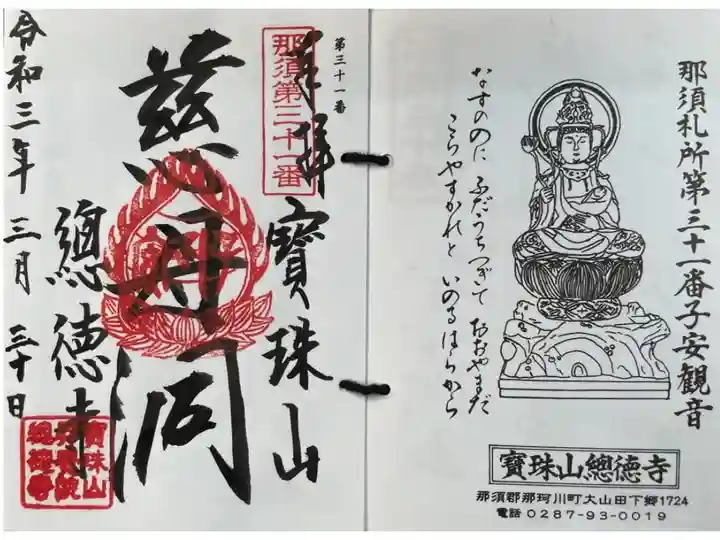 那須札所第三十一番子安観音
なすののに ふだうちつぎて おおやまだ
こらやすかれと いのるはらから
寶珠山總徳寺
那須郡那珂川町大山田下郷1724
電話 0287-93-0019
第三十一番
奉拝
那須第三十一番
寶珠山
慈母
總徳寺
令和三年 三月 三十日
寶珠山
總徳寺